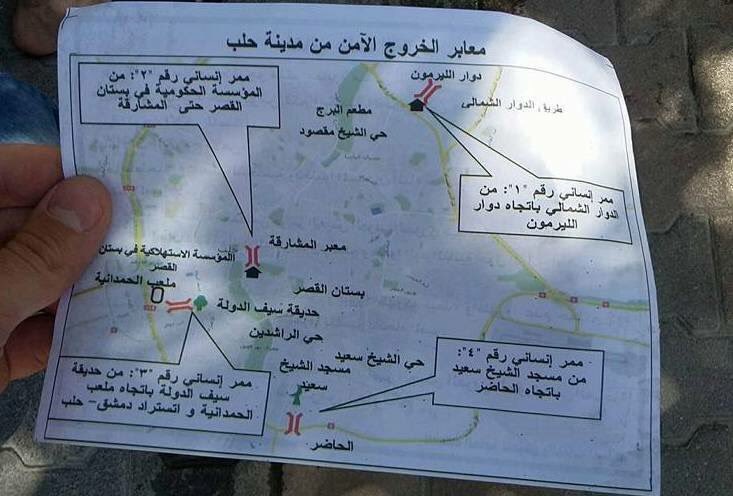 معابر الخروج الآمن من مدينة حلب
دوار الليرمون
طريق الدوار الشمالي
ممر إنساني رقم "٢": من
المؤسسة الحكومية في بستان
القصر حتى المشارقة
مطعم البرج
حي الشيخ مقصود
ممر إنساني رقم "١": من
الدوار الشمالي باتجاه دوار
الليرمون
معبر المشارقة
المؤسسة الاستهلاكية في بستان
القصر
ملعب الحمدانية
بستان القصر
حديقة سيف الدولة
حي الراشدين
حي الشيخ سعيد
مسجد الشيخ
سعيد
ممر إنساني رقم "٤":
من مسجد الشيخ سعيد
باتجاه الحاضر
ممر إنساني رقم "٣": من حديقة
سيف الدولة باتجاه ملعب
الحمدانية و اتستراد دمشق- حلب
الحاضر